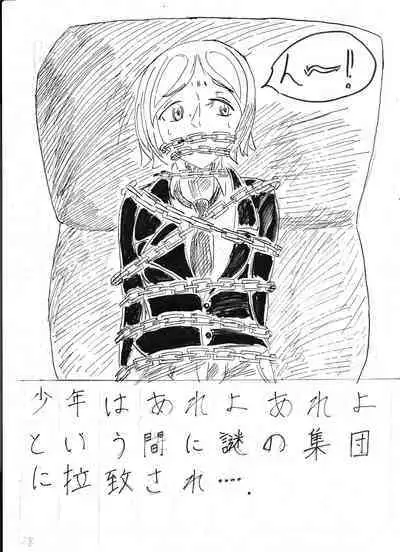 ん〜!
少年はあれよあれよ
という間に謎の集団
に拉致され‥‥.